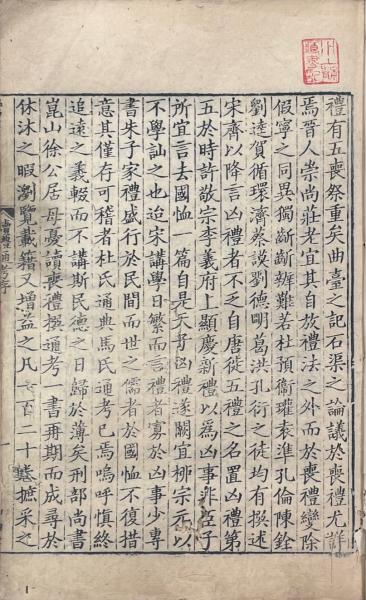 禮有五喪祭重矣曲臺之記石渠之論議於喪禮尤詳
焉晉人崇尚莊老宜其自放禮法之外而於喪禮變除
假寧之同異獨斷斷辨難若杜預衞瓘袁準孔倫陳銓
劉逵賀循環濟蔡謨劉德明葛洪孔衍之徒均有撰述
宋齊以降言凶禮者不乏自唐徙五禮之名置凶禮第
五於時許敬宗李義府上顯慶新禮以爲凶事非臣子
所宜言去國恤一篇自是天子凶禮遂闕宜柳宗元以
不學訕之也迨宋講學日繁而言禮者寡於凶事少專
書朱子家禮盛行於民間而世之儒者於國恤不復措
意其僅存可稽者杜氏通典馬氏通考已焉嗚呼慎終
追遠之義輟而不講斯民德之日歸於薄矣刑部尚書
崑山徐公居母憂讀喪禮撰通考一書再期而成尋於
休沐之暇瀏覽載籍又增益之凡一百二十卷摭采之
讀禮通考序